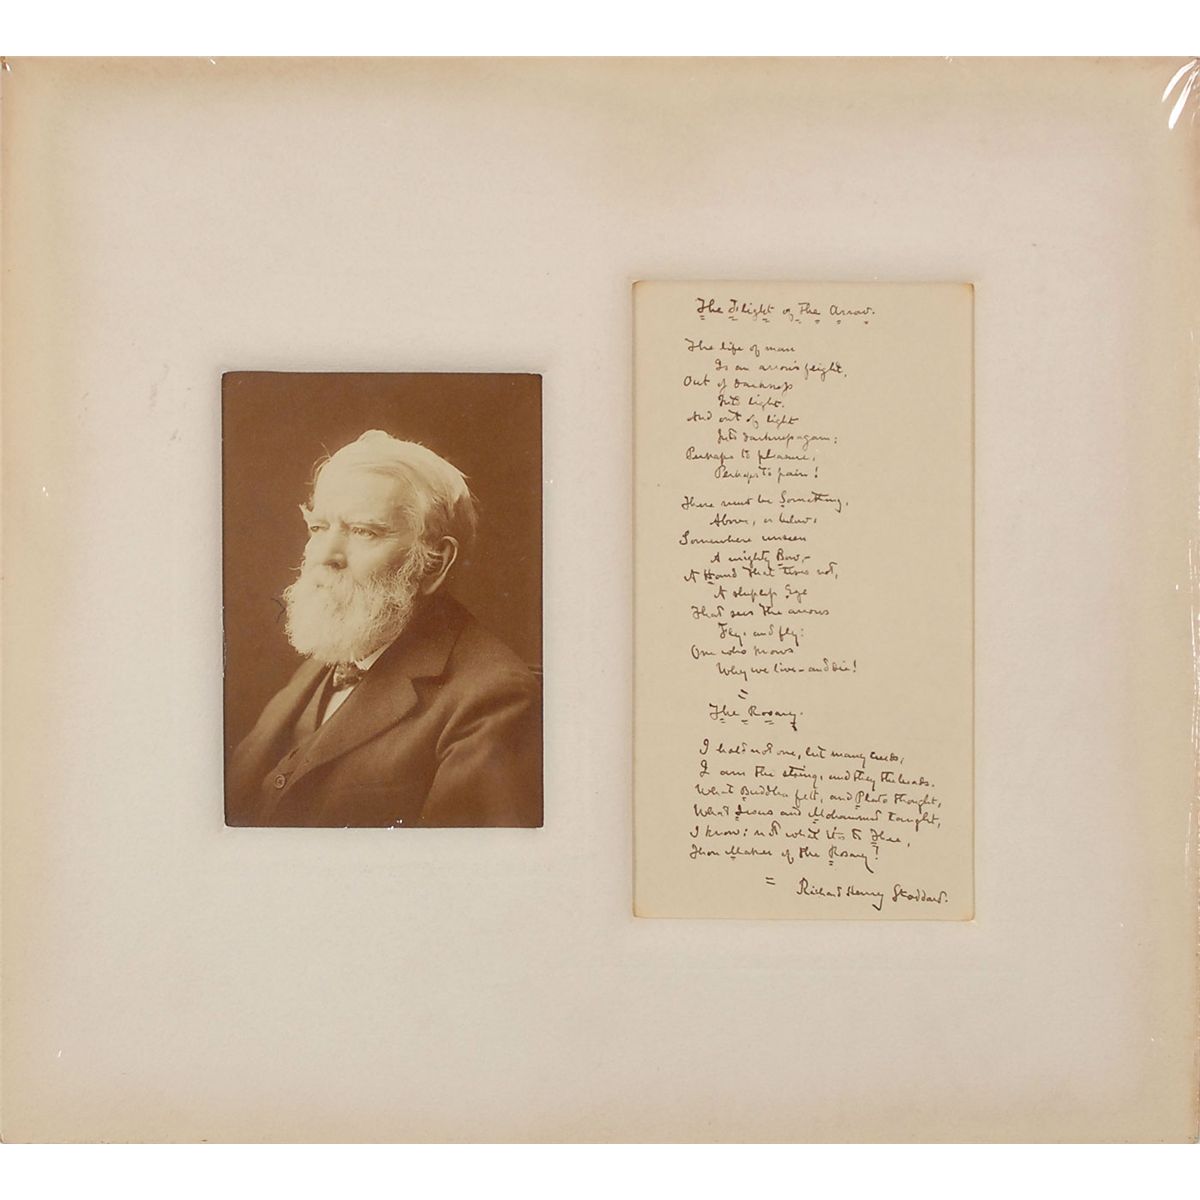 The Flight of The Arrow.
The life of man
Is an arrow's flight,
Out of darkness
Into light.
And out of light
Into darkness again;
Perhaps to pleasure,
Perhaps to pain!
There must be Something,
Above, or below;
Somewhere unseen
A mighty Bow,-
A Hand that tires not,
A sleepless Eye
That sees the arrows
Fly, and fly:
One who knows
Why we live - and die!
=
The Rosary.
I hold not one, but many creeds;
I am the string, and they the beads.
What Buddha felt, and Plato thought,
What Jesus and Mohammed taught,
I know: not what it is to Thee,
Thou Maker of the Rosary!
=
Richard Henry Stoddard.